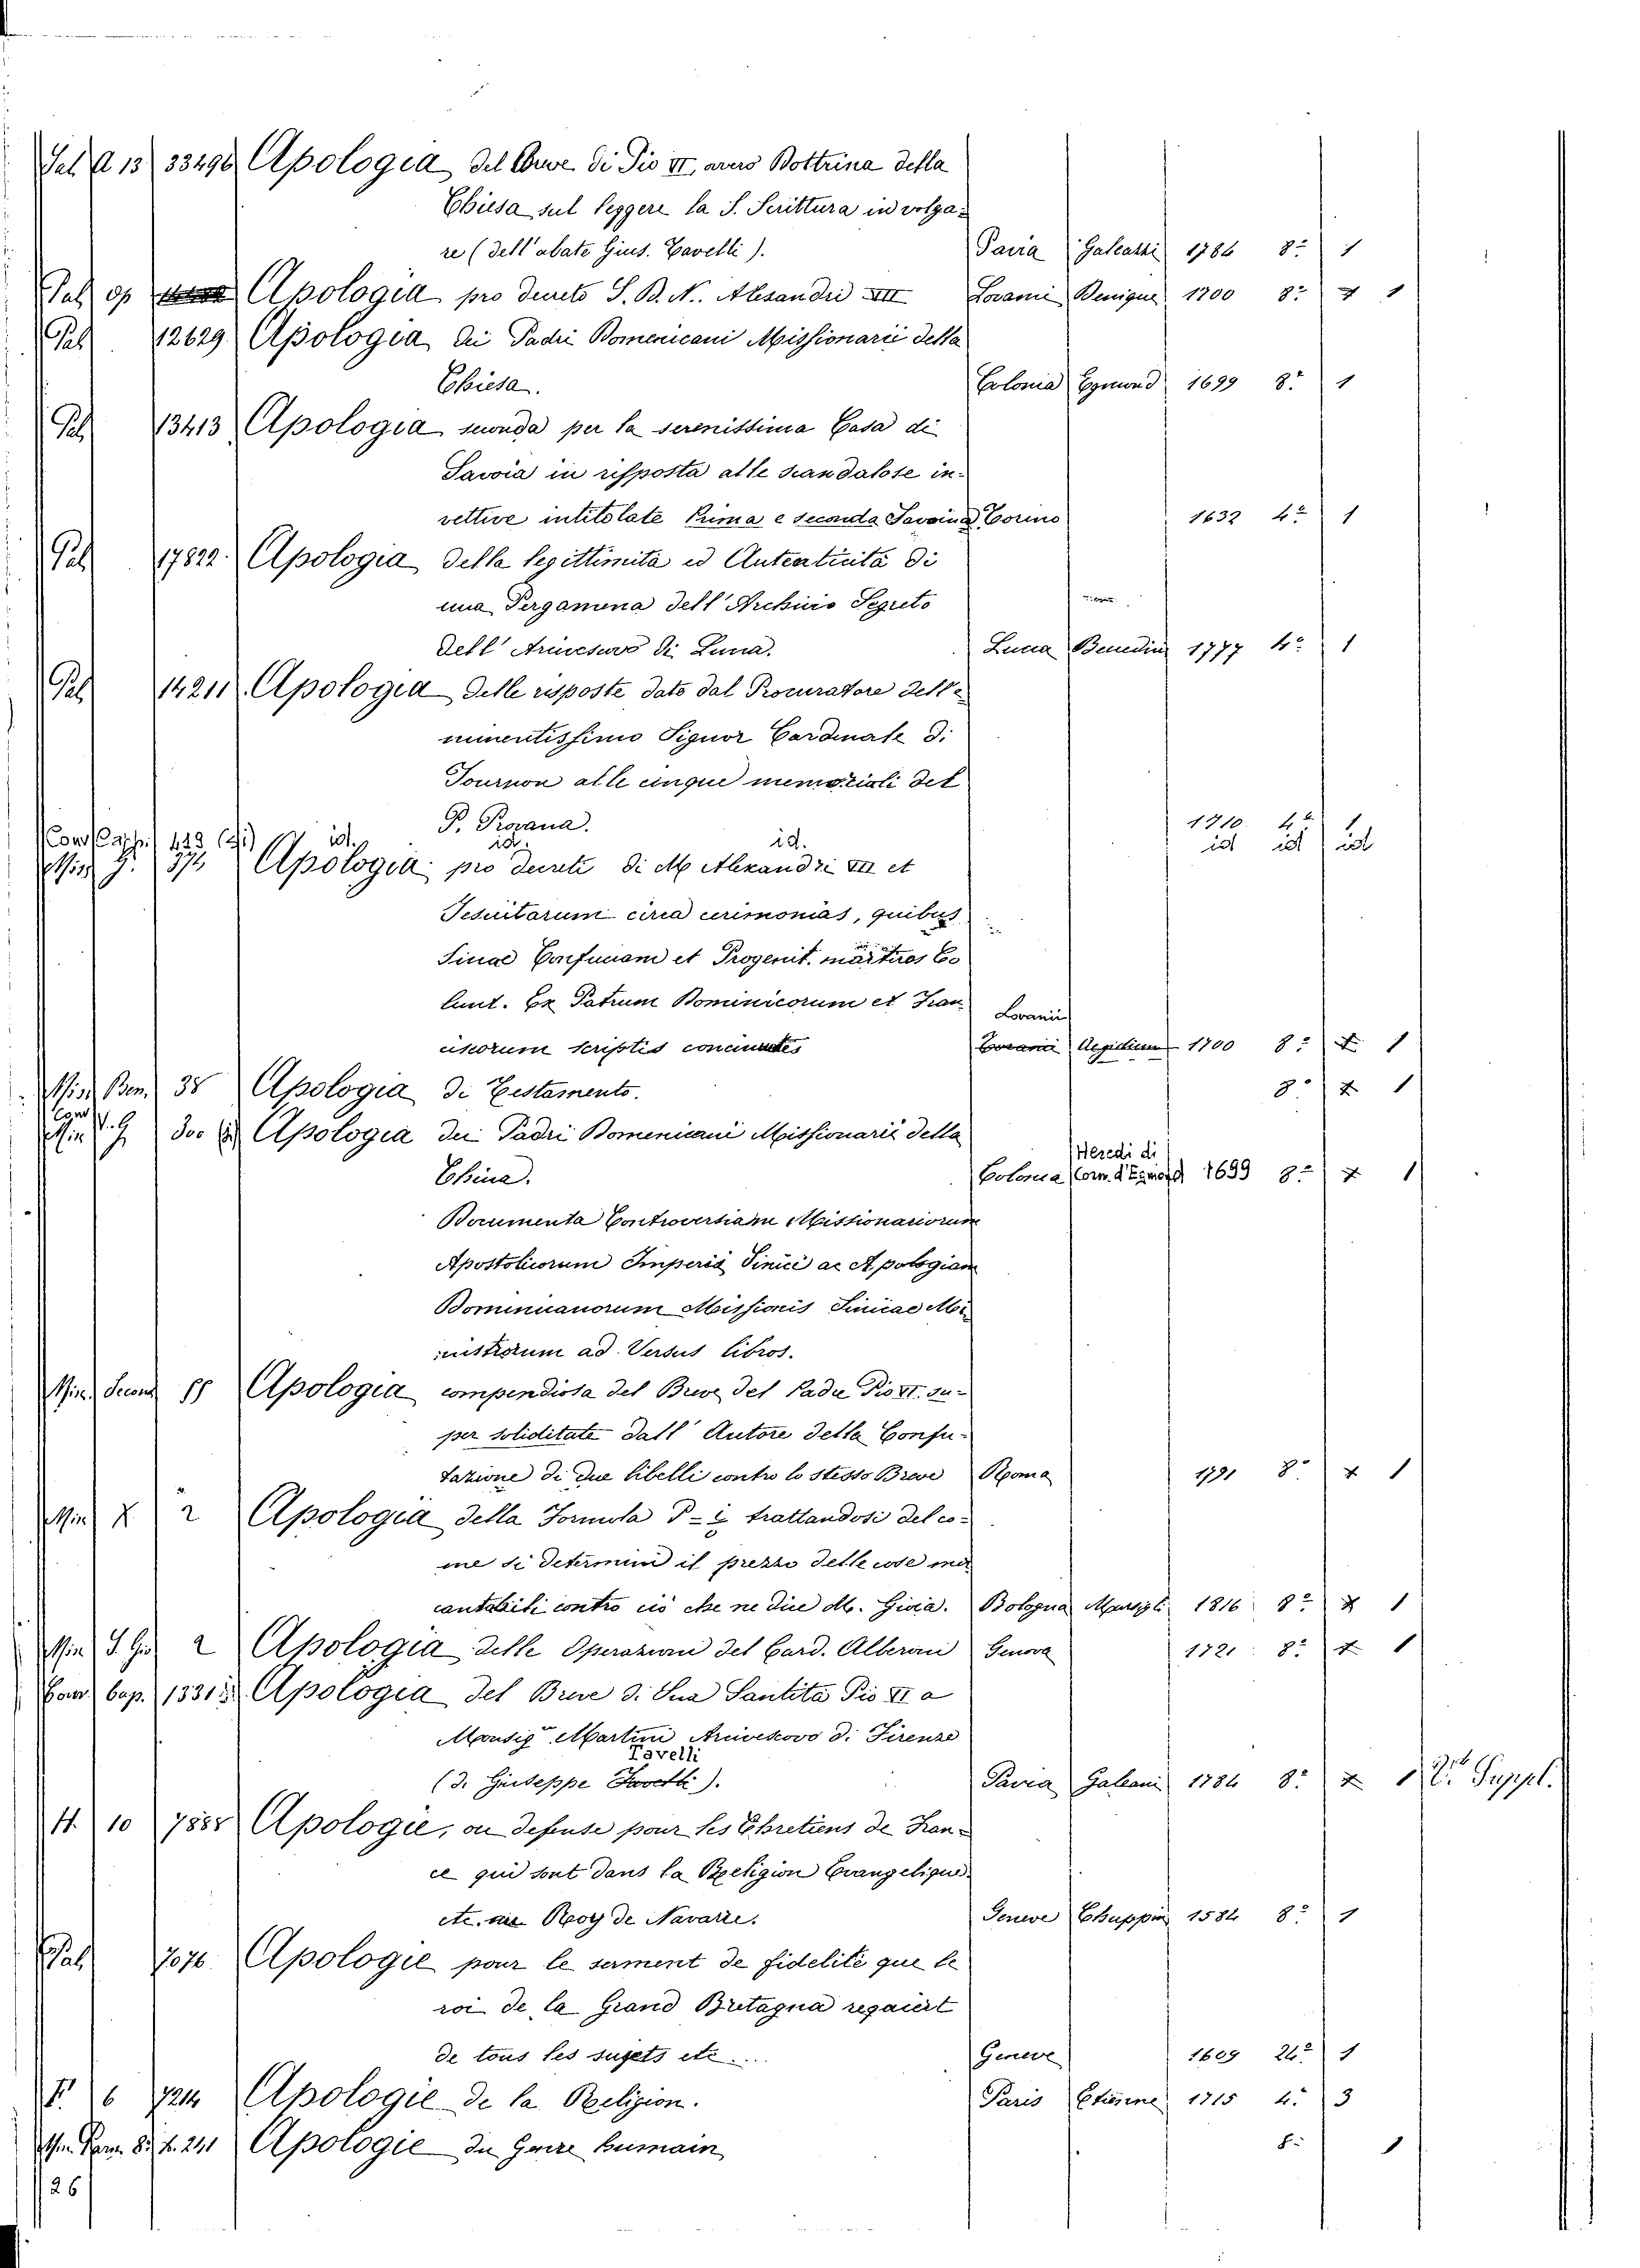 Pal A 13 33496 Apologia del Breve di Pio VI, overo Dottrina della
Chiesa sul leggere la S. Scrittura in volga-
re (dell'abate Gius. Tavelli). Pavia Galeazzi 1784 8º 1
Pal op Apologia pro decreto S. D. N. Alexandri VII Lovanii Benigne 1700 8º x 1
Pal 12629 Apologia dei Padri Domenicani Missionarii della
Chiesa. Colonia Egmond 1699 8º 1
Pal 13413 Apologia seconda per la serenissima Casa di
Savoia in risposta alle scandalose in-
vettive intitolate Prima e seconda Savoina Torino 1632 4º 1
Pal 17822 Apologia della legittimità ed Autenticità di
una Pergamena dell'Archivio Segreto
dell'Arcivescovo di Lucca. Lucca Benedini 1777 4º 1
Pal 14211 Apologia delle risposte date dal Procuratore dell'e-
minentissimo Signor Cardinale di
Tournon alle cinque memoriali del
P. Provana. 1710 4º 1
Conv Capp. 423 id. id. id. id id id
Min G. 374 Apologia pro decreto di M Alexandri VII et
Jesuitarum circa cerimonias, quibus
Sinae Confucium et Progenit. martuos Co
lunt. Ex Patrum Dominicorum et Fran Lovanii
ciscorum scriptis concinnates Aegidium 1700 8º x 1
Min Ben. 38 Apologia di Testamento. 8º x 1
Conv
Min V. G. 300 Apologia dei Padri Domenicani Missionarii della
Heredi di
China. Colonia Corn. d'Egmond 1699 8º x 1
Documenta Controversiam Missionariorum
Apostolicorum Imperii Sinici ac Apologiam
Dominicanorum Missionis Sinicae Mi-
nistrorum ad Versus libros.
Min. Second Apologia compendiosa del Breve del Padre Pio VI. su-
per soliditate dall'Autore della Confu-
tazione di due libelli contro lo stesso Breve Roma 1791 8º x 1
Min X 2 Apologia della Formola trattandosi del co-
me si determini il prezzo delle cose mer
cantabili contro ciò che ne dice M. Gioia. Bologna Marsigli 1816 8º x 1
Min S. Gio 2 Apologia delle Operazioni del Card. Alberoni Genova 1721 8º x 1
Conv Cap. 1331 Apologia del Breve di Sua Santità Pio VI a
Monsigr Martini Arcivescovo di Firenze
Tavelli
(di Giuseppe). Pavia Galeazzi 1784 8º x 1 Suppl.
H. 10 7888 Apologie, ou defense pour les Chretiens de Fran-
ce qui sont dans la Religion Evangelique
etc. au Roy de Navarre. Geneve Chuppin 1584 8º 1
Pal 7076 Apologie pour le serment de fidelité que le
roi de la Grand Bretagna requiert
de tous les sujets etc.... Geneve 1609 24º 1
F. 6 7214 Apologie de la Religion. Paris Etienne 1715 4º 3
8. f. 241 Apologie du Genre humain 8º 1
26